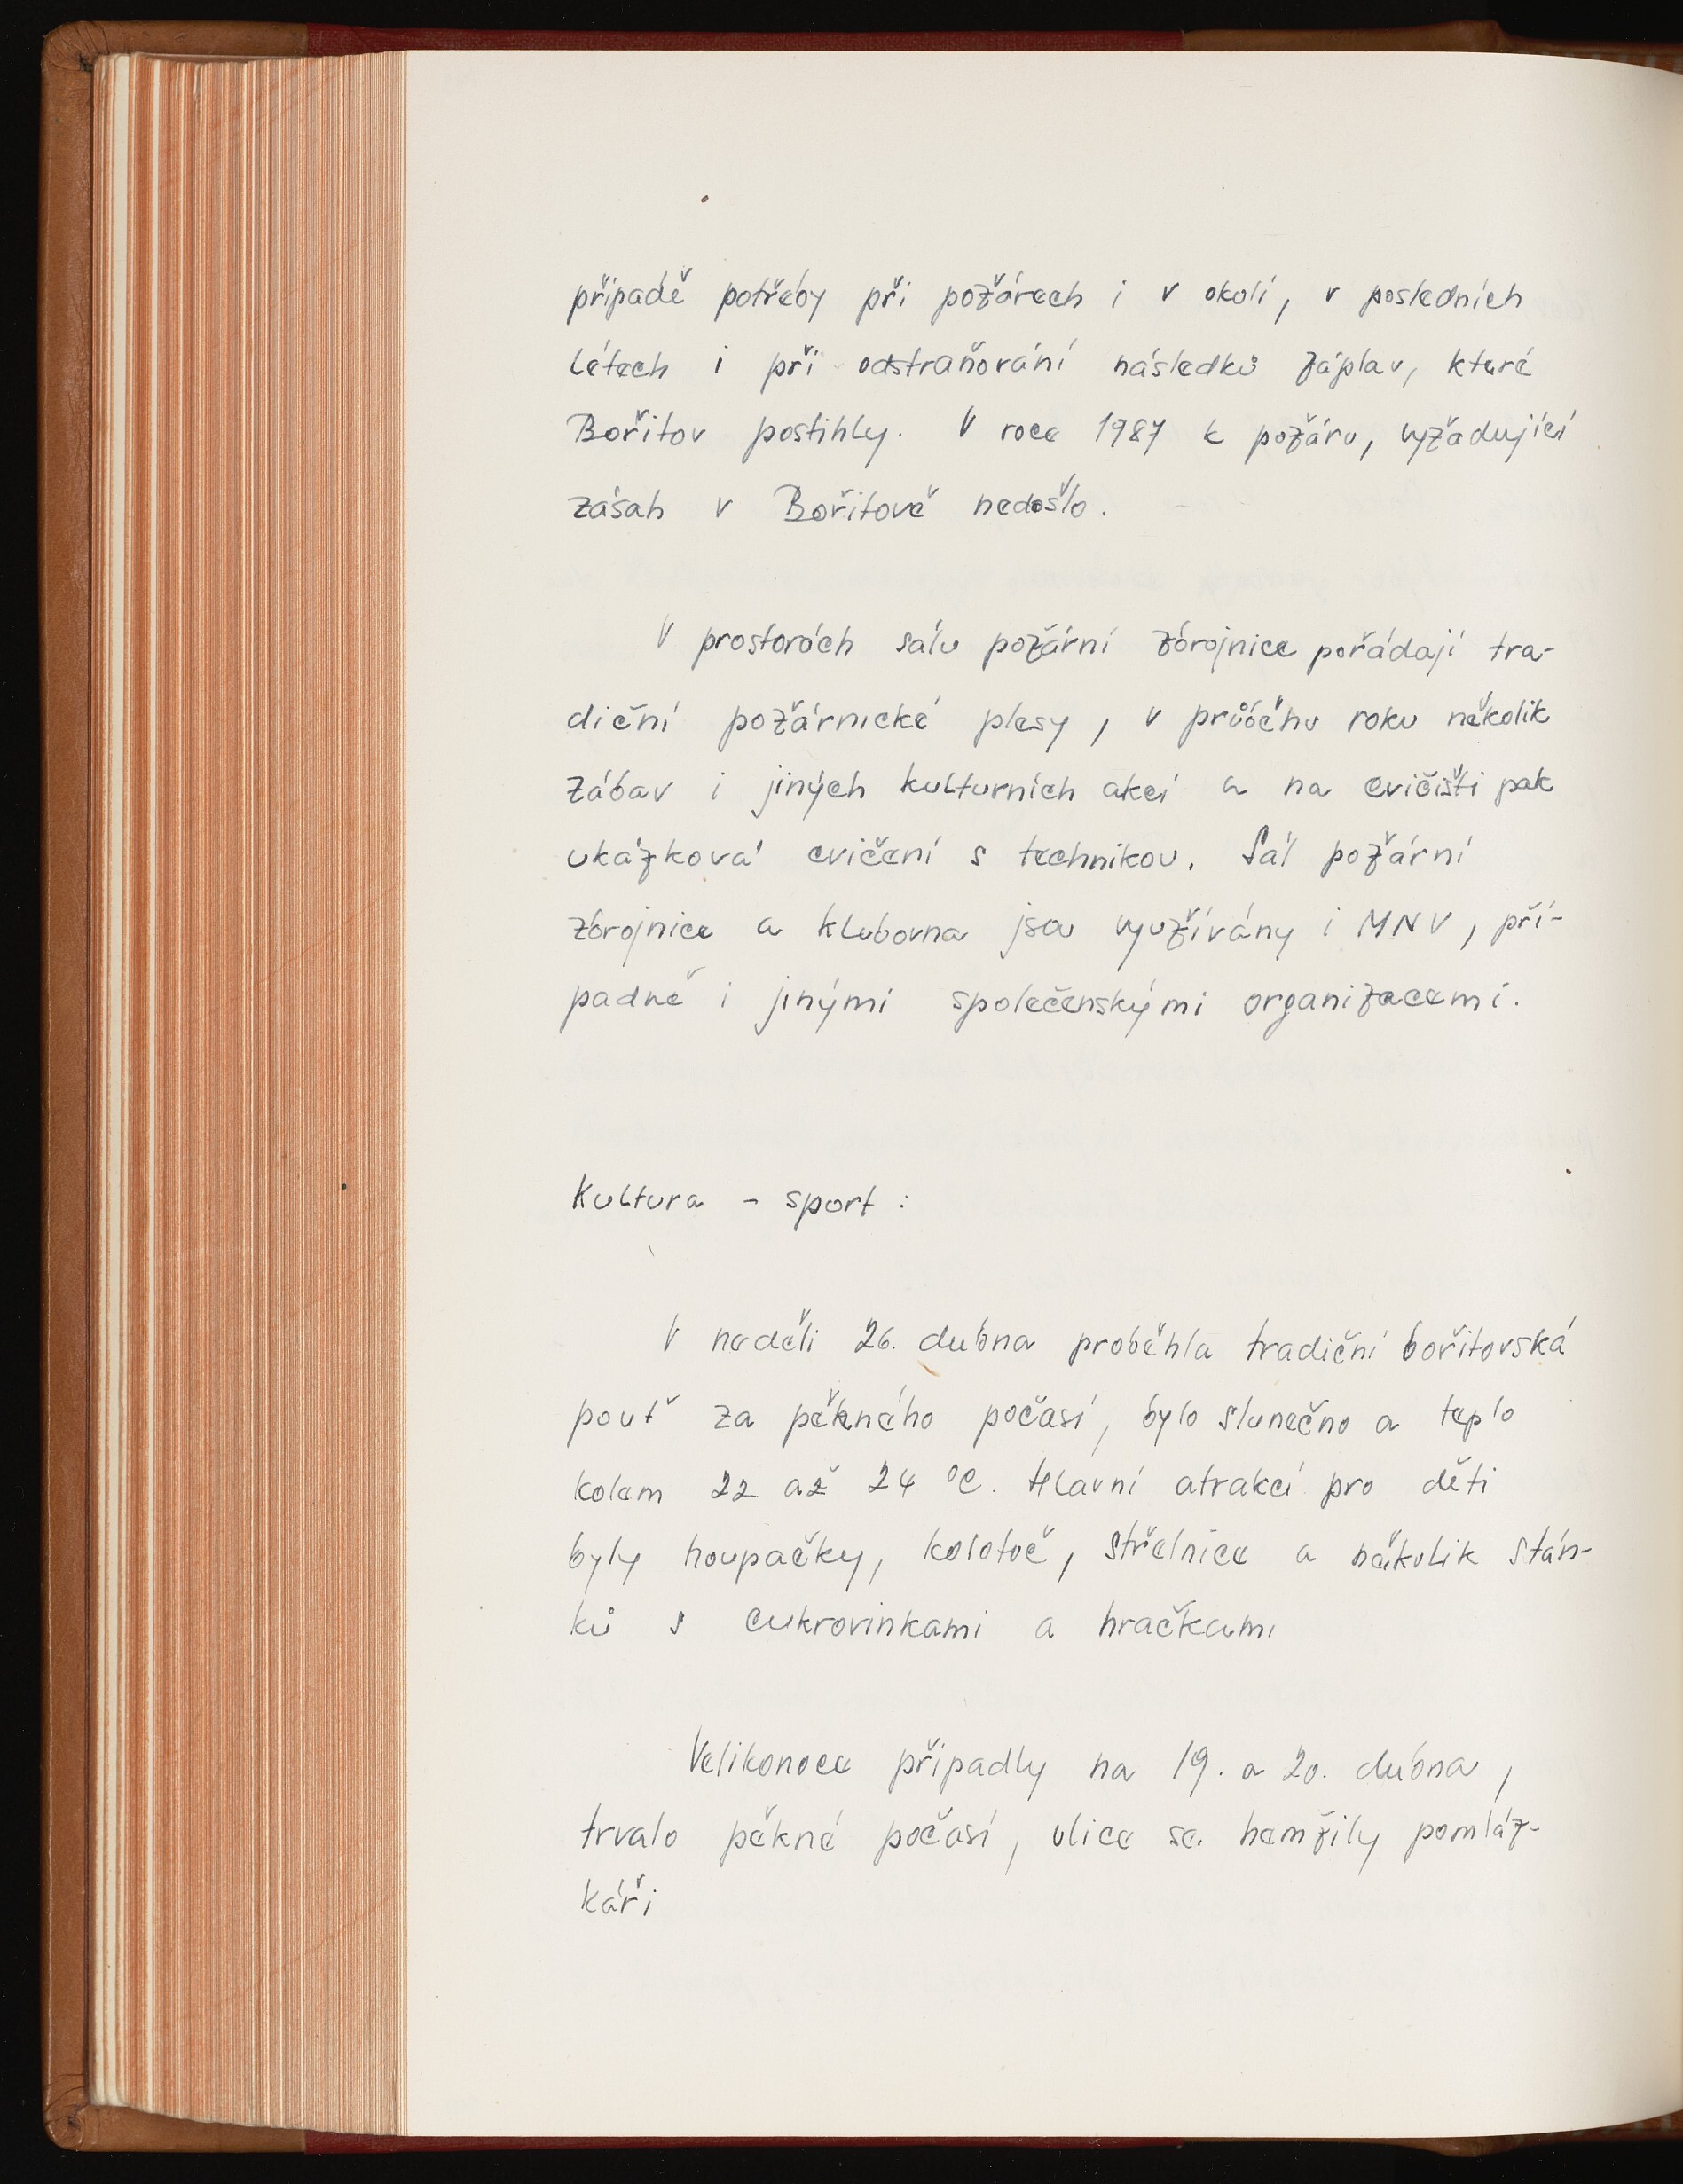 případě potřeby při požárech i v okolí, v posledních
létech i při odstraňování následků záplav, které
Bořitov postihly. V roce 1987 k požáru, vyžadující
zásah v Bořitově nedošlo.
V prostorách sálu požární zbrojnice pořádají tra-
diční požárnické plesy, v průběhu roku několik
zábav i jiných kulturních akcí a na cvičišti pak
ukázková cvičení s technikou. Sál požární
zbrojnice a klubovna jsou využívány i MNV, pří-
padně i jinými společenskými organizacemi.
Kultura - sport :
V neděli 26. dubna proběhla tradiční bořitovská
pouť za pěkného počasí, bylo slunečno a teplo
kolem 22 až 24 °C. Hlavní atrakcí pro děti
byly houpačky, kolotoč, střelnice a několik stán-
ků s cukrovinkami a hračkami
Velikonoce připadly na 19. a 20. dubna,
trvalo pěkné počasí, ulice se hemžily pomláz-
káři